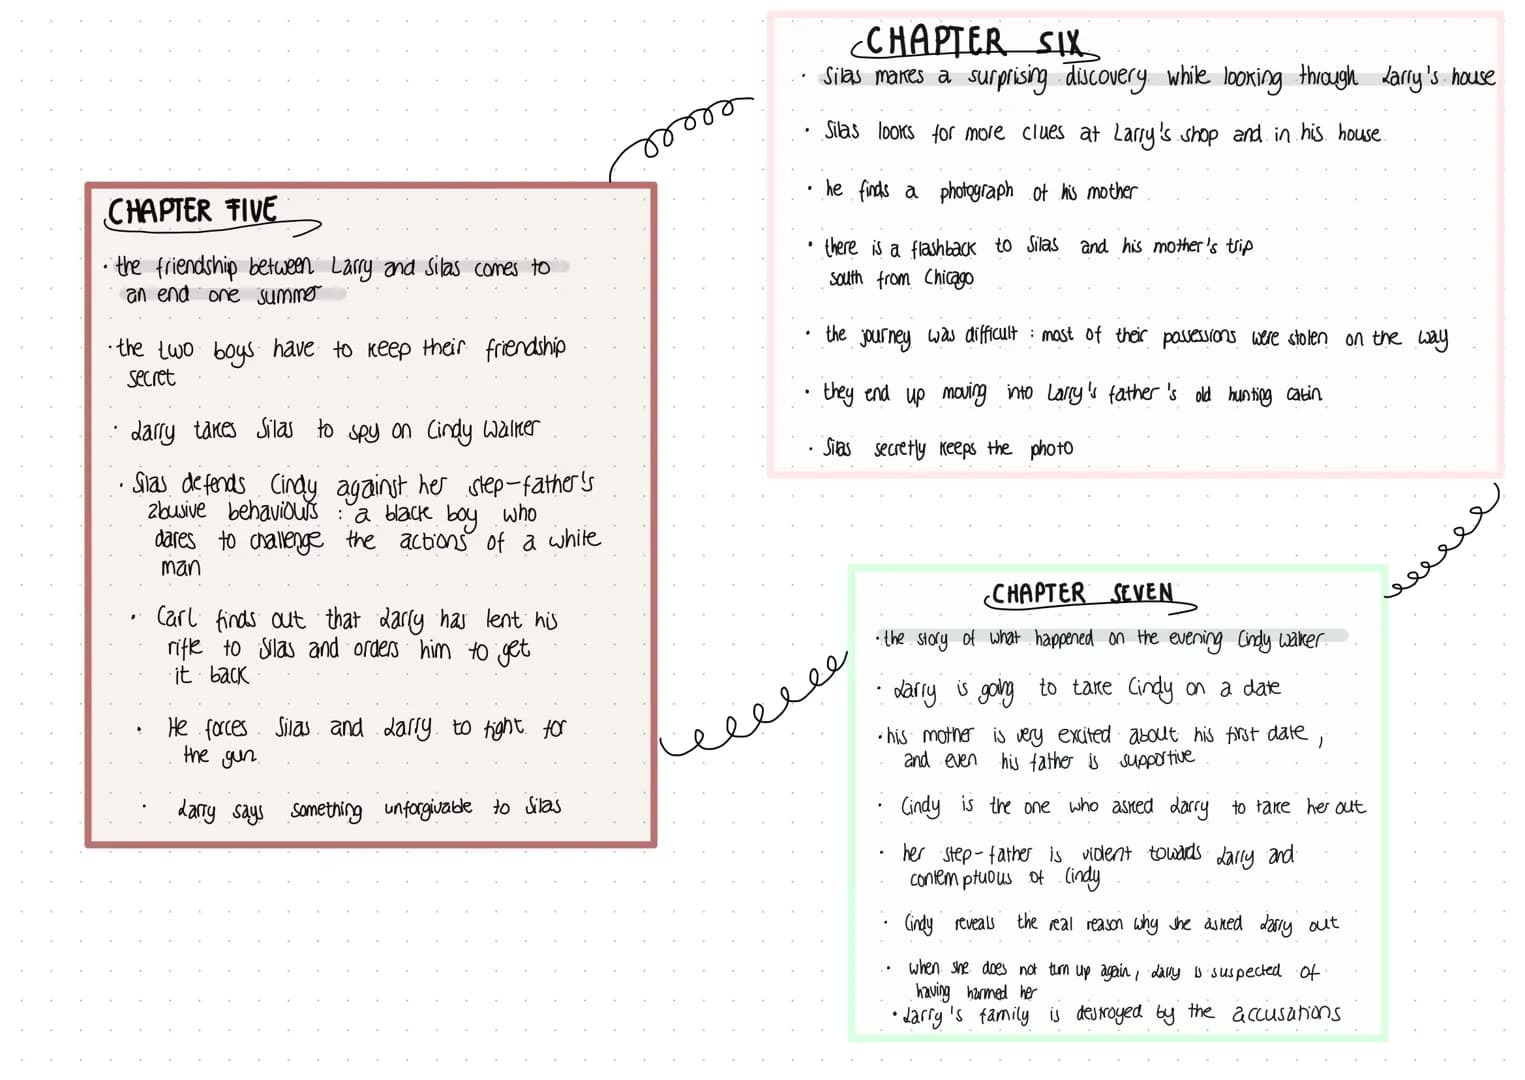 CHAPTER FIVE
· the friendship between Larry and Silas comes to
an end one summer
· the two boys have to keep their friendship
secret
· Larry takes Silas to spy on Cindy Walker
· Silas defends Cindy against her step-father's
abusive behaviours : a black boy who
dares to challenge the actions of a white
man
· Carl finds out that Larry has lent his
rifle to Silas and orders him to get
it back
· He forces Silas and Larry to fight for
the gun
· Larry says something unforgivable to Silas
CHAPTER SIX
· Silas makes a surprising discovery while looking through Larry's house
· Silas looks for more clues at Larry's shop and in his house
· he finds a photograph of his mother
· there is a flashback to Silas and his mother's trip
south from Chicago
· the journey was difficult : most of their possessions were stolen on the way
· they end up moving into Larry's father's old hunting cabin
· Silas secretly keeps the photo
CHAPTER SEVEN
· the story of what happened on the evening Cindy Walker
· Larry is going to take Cindy on a date
· his mother is very excited about his first date,
and even his father is supportive
· Cindy is the one who asked Larry to take her out
· her step-father is violent towards Larry and
contemptuous of Cindy
· Cindy reveals the real reason why she asked Larry out
· when she does not turn up again, Larry is suspected of
having harmed her
· Larry's family is destroyed by the accusations